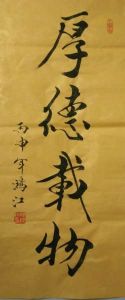 厚德載物
丙申年鴻江